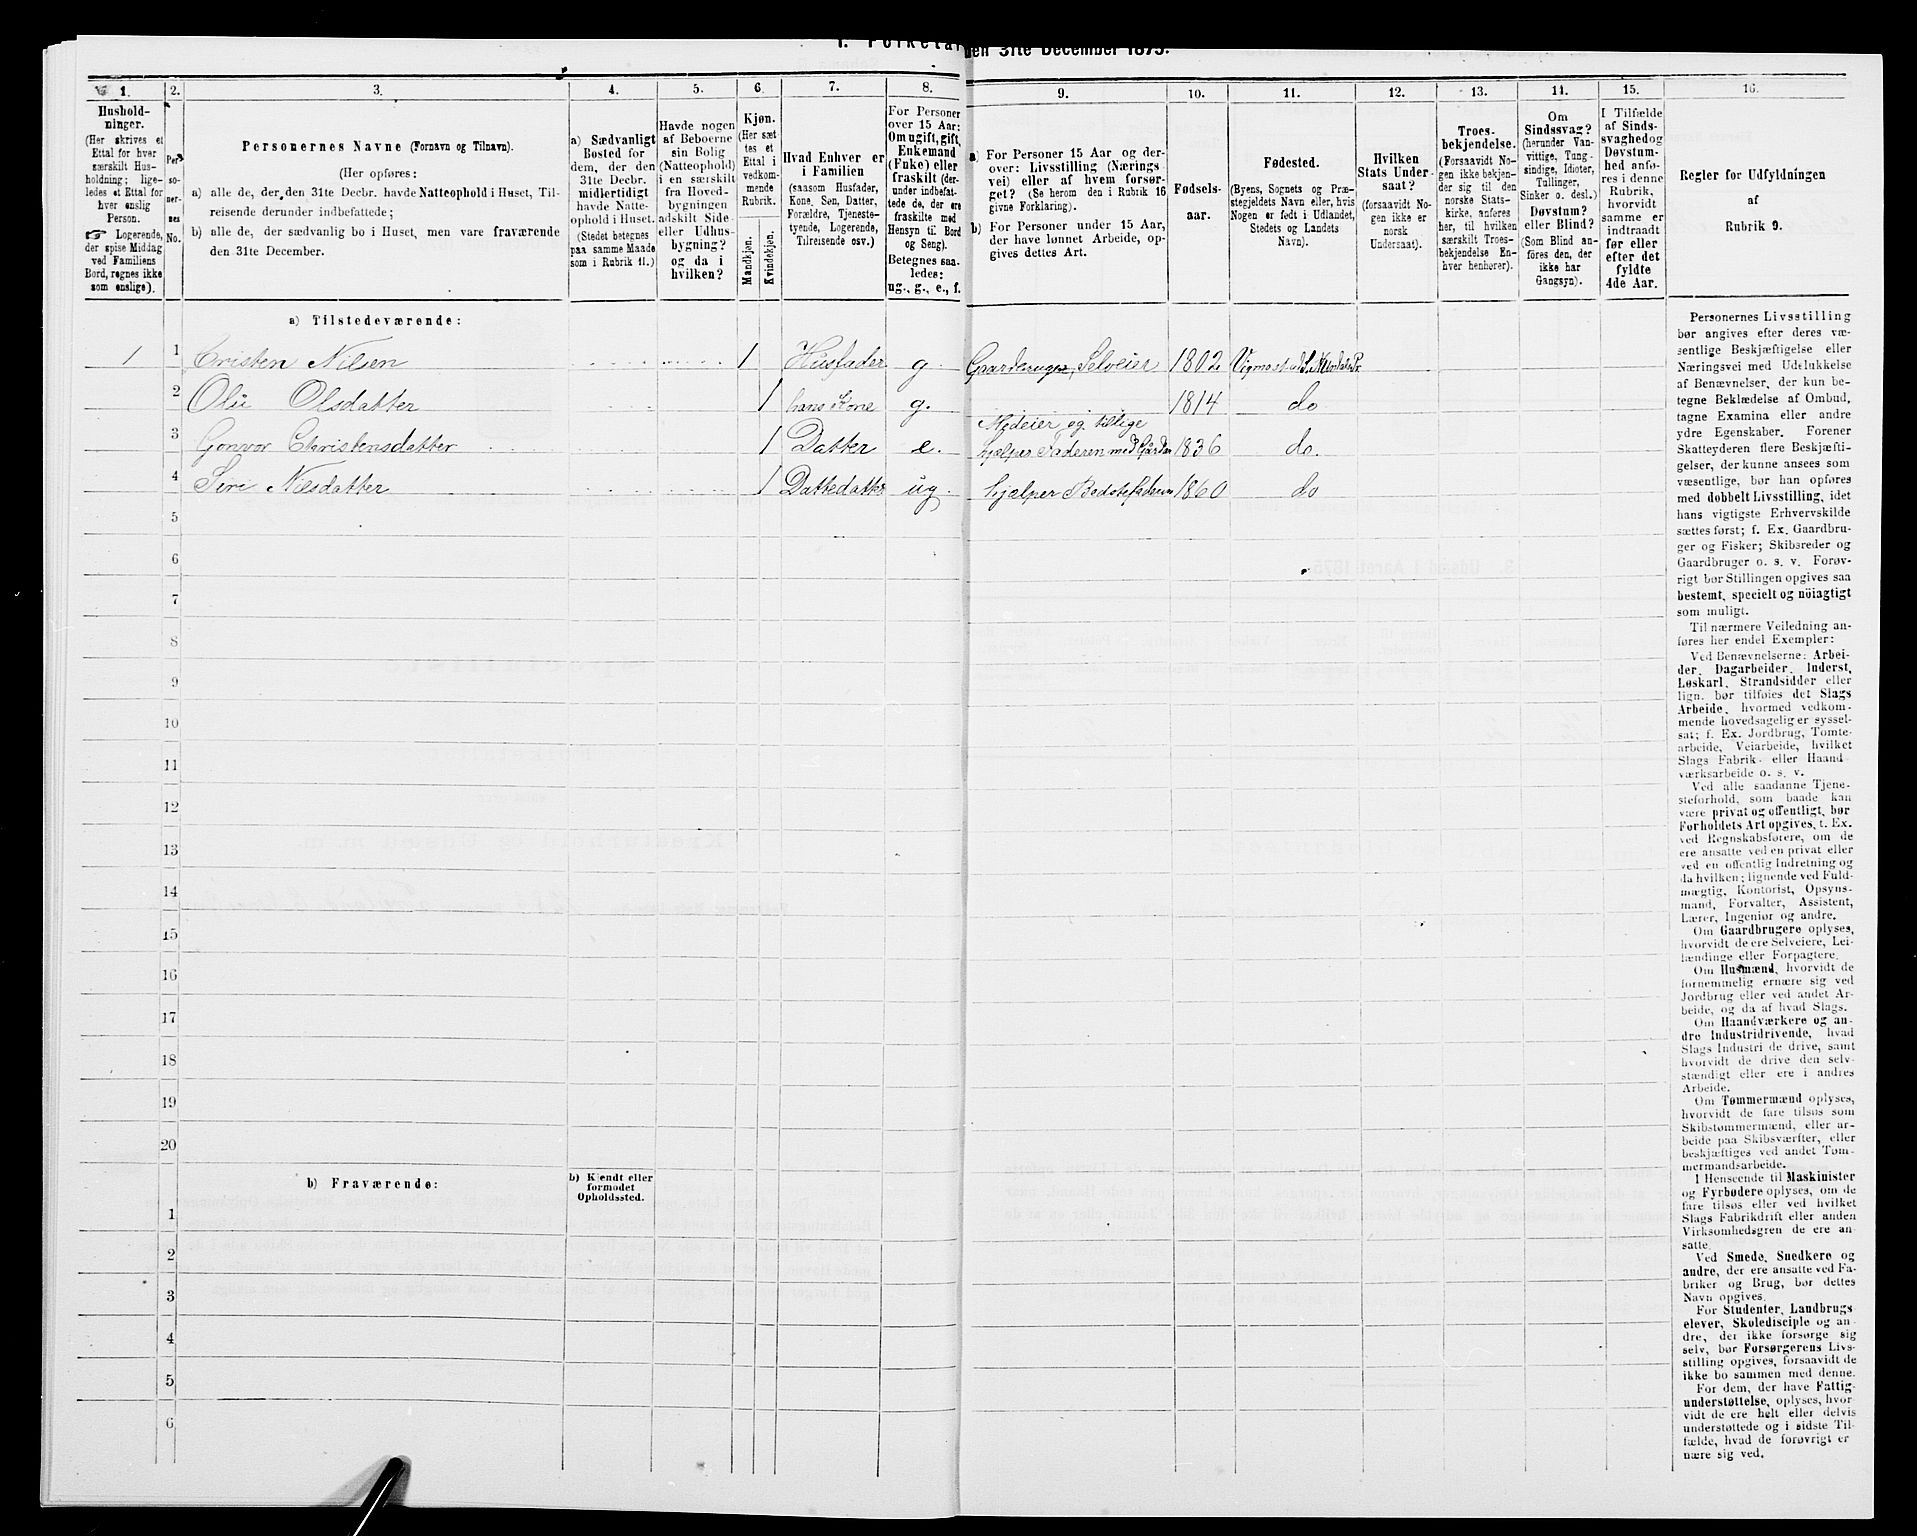 den 31te December 1875.
1.
2.
3.
4.
5.
6.
7.
8.
9.
10.
11.
12.
13.
14.
15.
16.
Hushold-
ninger.
(Her skrives et
Ettal for hver
særskilt Hus-
holdning; lige-
ledes et Ettal for
hver enslig
Person.
☞ Logerende,
der spise Middag
ved Familiens
Bord, regnes ikke
som enslige).
Per
so-
ner-
nes
No.
Personernes Navne (Fornavn og Tilnavn).
(Her opføres:
a) alle de, der den 31te Decbr. havde Natteophold i Huset, Til-
reisende derunder indbefattede;
b) alle de, der sædvanlig bo i Huset, men vare fraværende
den 31te December.
a) Sædvanligt
Bosted for
dem, der den
31te Decbr.
midlertidigt
havde Natte-
ophold i Huset.
(Stedet betegnes
paa samme Maade
som i Rubrik 11.)
Havde nogen
af Beboerne
sin Bolig
(Natteophold)
i en særskilt
fra Hoved-
bygningen
adskilt Side-
eller Udhus-
bygning?
og da i
hvilken?
Kjøn.
(Her sæt
tes et
Ettal i
vedkom-
mende
Rubrik.
Mandkjøn.
Kvindekjøn.
Hvad Enhver er
i Familien
(saasom Husfader,
Kone, Søn, Datter,
Forældre, Tjeneste-
tyende, Logerende,
Tilreisende osv.)
For Personer
over 15 Aar:
Om ugift, gift,
Enkemand
(Enke) eller
fraskilt (der-
under indbefat-
tede de, der ere
fraskilte med
Hensyn til Bord
og Seng).
Betegnes saa-
ledes:
ug., g., e., f.
a) For Personer 15 Aar og der-
over: Livsstilling (Nærings
vei) eller af hvem forsør-
get? (Se herom den i Rubrik 16
givne Forklaring).
b) For Personer under 15 Aar,
der have lønnet Arbeide, op-
gives dettes Art.
Fødsels-
aar.
Fødested.
(Byens, Sognets og Præ-
stegjeldets Navn eller, hvis
Nogen er født i Udlandet,
Stedets og Landets
Navn).
Hvilken
Stats Under-
saat?
(forsaavidt No-
gen ikke er
norsk
Undersaat).
Troes-
bekjendelse.
(Forsaavidt No-
gen ikke bekjen-
der sig til den
norske Stats-
kirke, anføres
her, til hvilken
særskilt Troes-
bekjendelse En-
hver henhører).
Om
Sindssvag?
(herunder Van-
vittige, Tung-
sindige, Idioter,
Tullinger,
Sinker o. desl.)
Døvstum?
eller Blind?
(Som Blind an-
føres den, der
ikke har
Gangsyn).
I Tilfælde
af Sinds-
svaghed og
Døvstum-
hed anfø-
res i denne
Rubrik,
hvorvidt
samme er
indtraadt
før eller
efter det
fyldte
4de Aar.
Regler for Udfyldningen
af
Rubrik 9.
a) Tilstedeværende:
1 1 Cristen Nilsen 1 Husfader g. Gaardbruger, Selveier 1802
2 Olii Olsdatter 1 hans Kone g. 1814 do
Medeier og tillige
3 Gonvor Christensdatter 1 Datter e. hjælper Faderen med Gården 1836 do.
4 Siri Nilsdatter 1 Dattedatter ug. hjælper Bedstefaderen 1860 do
5
6
7
8
9
10
11
12
13
14
15
16
17
18
19
20
b) Fraværende:
b) Kjendt eller
formodet
Opholdssted.
1
2
3
4
5
6
Personernes Livsstilling
bør angives efter deres væ-
sentlige Beskjæftigelse eller
Næringsvei med Udelukkelse
af Benævnelser, der kun be-
tegne Beklædelse af Ombud,
tagne Examina eller andre
ydre Egenskaber. Forener
Skatteyderen flere Beskjæfti-
gelser, der kunne ansees som
væsentlige, bør han opføres
med dobbelt Livsstilling, idet
hans vigtigste Erhvervskilde
sættes først; f. Ex. Gaardbru-
ger og Fisker; Skibsreder og
Gaardbruger o. s. v. Forøv-
rigt bør Stillingen opgives saa
bestemt, specielt og nöiagtigt
som muligt.
Til nærmere Veiledning an-
føres her endel Exempler:
Ved Benævnelserne: Arbei-
der, Dagarbeider, Inderst,
Løskarl, Strandsidder eller
lign. bør tilføies det Slags
Arbeide, hvormed vedkom-
mende hovedsagelig er syssel-
sat; f. Ex. Jordbrug, Tomte-
arbeide, Veiarbeide, hvilket
Slags Fabrik- eller Haand
værksarbeide o. s. v.
Ved alle saadanne Tjene-
steforhold, som baade kan
være privat og offentligt, bør
Forholdets Art opgives, t. Ex.
ved Regnskabsførere, om de
ere ansatte ved en privat eller
ved en offentlig Indretning og
da hvilken; lignende ved Fuld-
mægtig, Kontorist, Opsyns-
mand, Forvalter, Assistent,
Lærer, Ingeniør og andre.
Om Gaardbrugere oplyses,
hvorvidt de ere Selveiere, Lei-
lændinge eller Forpagtere.
Om Husmænd, hvorvidt de
fornemmelig ernære sig ved
Jordbrug eller ved andet Ar-
beide, og da af hvad Slags.
Om Haandværkere og an-
dre Industridrivende, hvad
Slags Industri de drive, samt
hvorvidt de drive den selv-
stændigt eller ere i andres
Arbeide.
Om Tømmermænd oplyses,
hvorvidt de fare tilsøs som
Skibstømmermænd, eller ar-
beide paa Skibsværfter, eller
beskjæftiges ved andet Tøm-
mermandsarbeide.
I Henseende til Maskinister
og Fyrbødere oplyses, om de
fare tilsøs eller ved hvilket
Slags Fabrikdrift eller anden
Virksomhedsgren de ere an-
satte.
Ved Smede, Snedkere og
andre, der ere ansatte ved Fa-
briker og Brug, bør dettes
Navn opgives.
For Studenter, Landbrugs
elever, Skoledisciple og an-
dre, der ikke forsørge sig
selv, bør Forsørgerens Livs-
stilling opgives, forsaavidt de
ikke bo sammen med denne.
For dem, der have Fattig-
understøttelse, oplyses, hvor-
vidt de ere helt eller delvis
understøttede og i sidste Til-
fælde, hvad de forøvrigt er
nære sig ved.